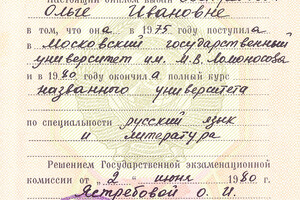 Ольге Ивановне
в том, что она в 1975 году поступила
в Московский государственный
университет им. М.В. Ломоносова
и в 1980 году окончила полный курс
названного университета
по специальности русский язык
и литература
Решением Государственной экзаменационной
комиссии от " 2 " июня 1980 г.
Ястребовой О. И.